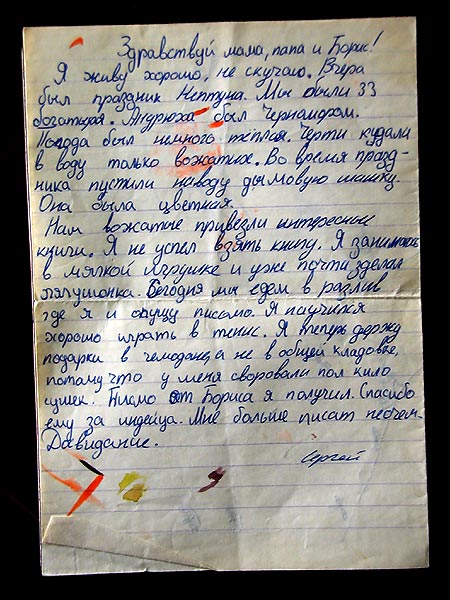 Здравствуй мама, папа и Борис!
Я живу хорошо, не скучаю. Вчера
был праздник Нептуна. Мы были 33
богатыря. Андрюха был Черномором.
Погода был немного тёплая. Черти кидали
в воду только вожатых. Во время празд-
ника пустили на воду дымовую шашку.
Она была цветная.
Нам вожатые привезли интересные
книги. Я не успел взять книгу. Я занимаюсь
в мягкой игрушке и уже почти зделал
лягушонка. Сегодня мы едем в разлив
где я и опущу письмо. Я научился
хорошо играть в тенис. Я теперь держу
подарки в чемодане, а не в общей кладовке,
потаму что у меня своровали пол кило
сушек. Писмо от Бориса я получил. Спасибо
ему за индейца. Мне больше писат неочем.
Досвидание.
Сергей